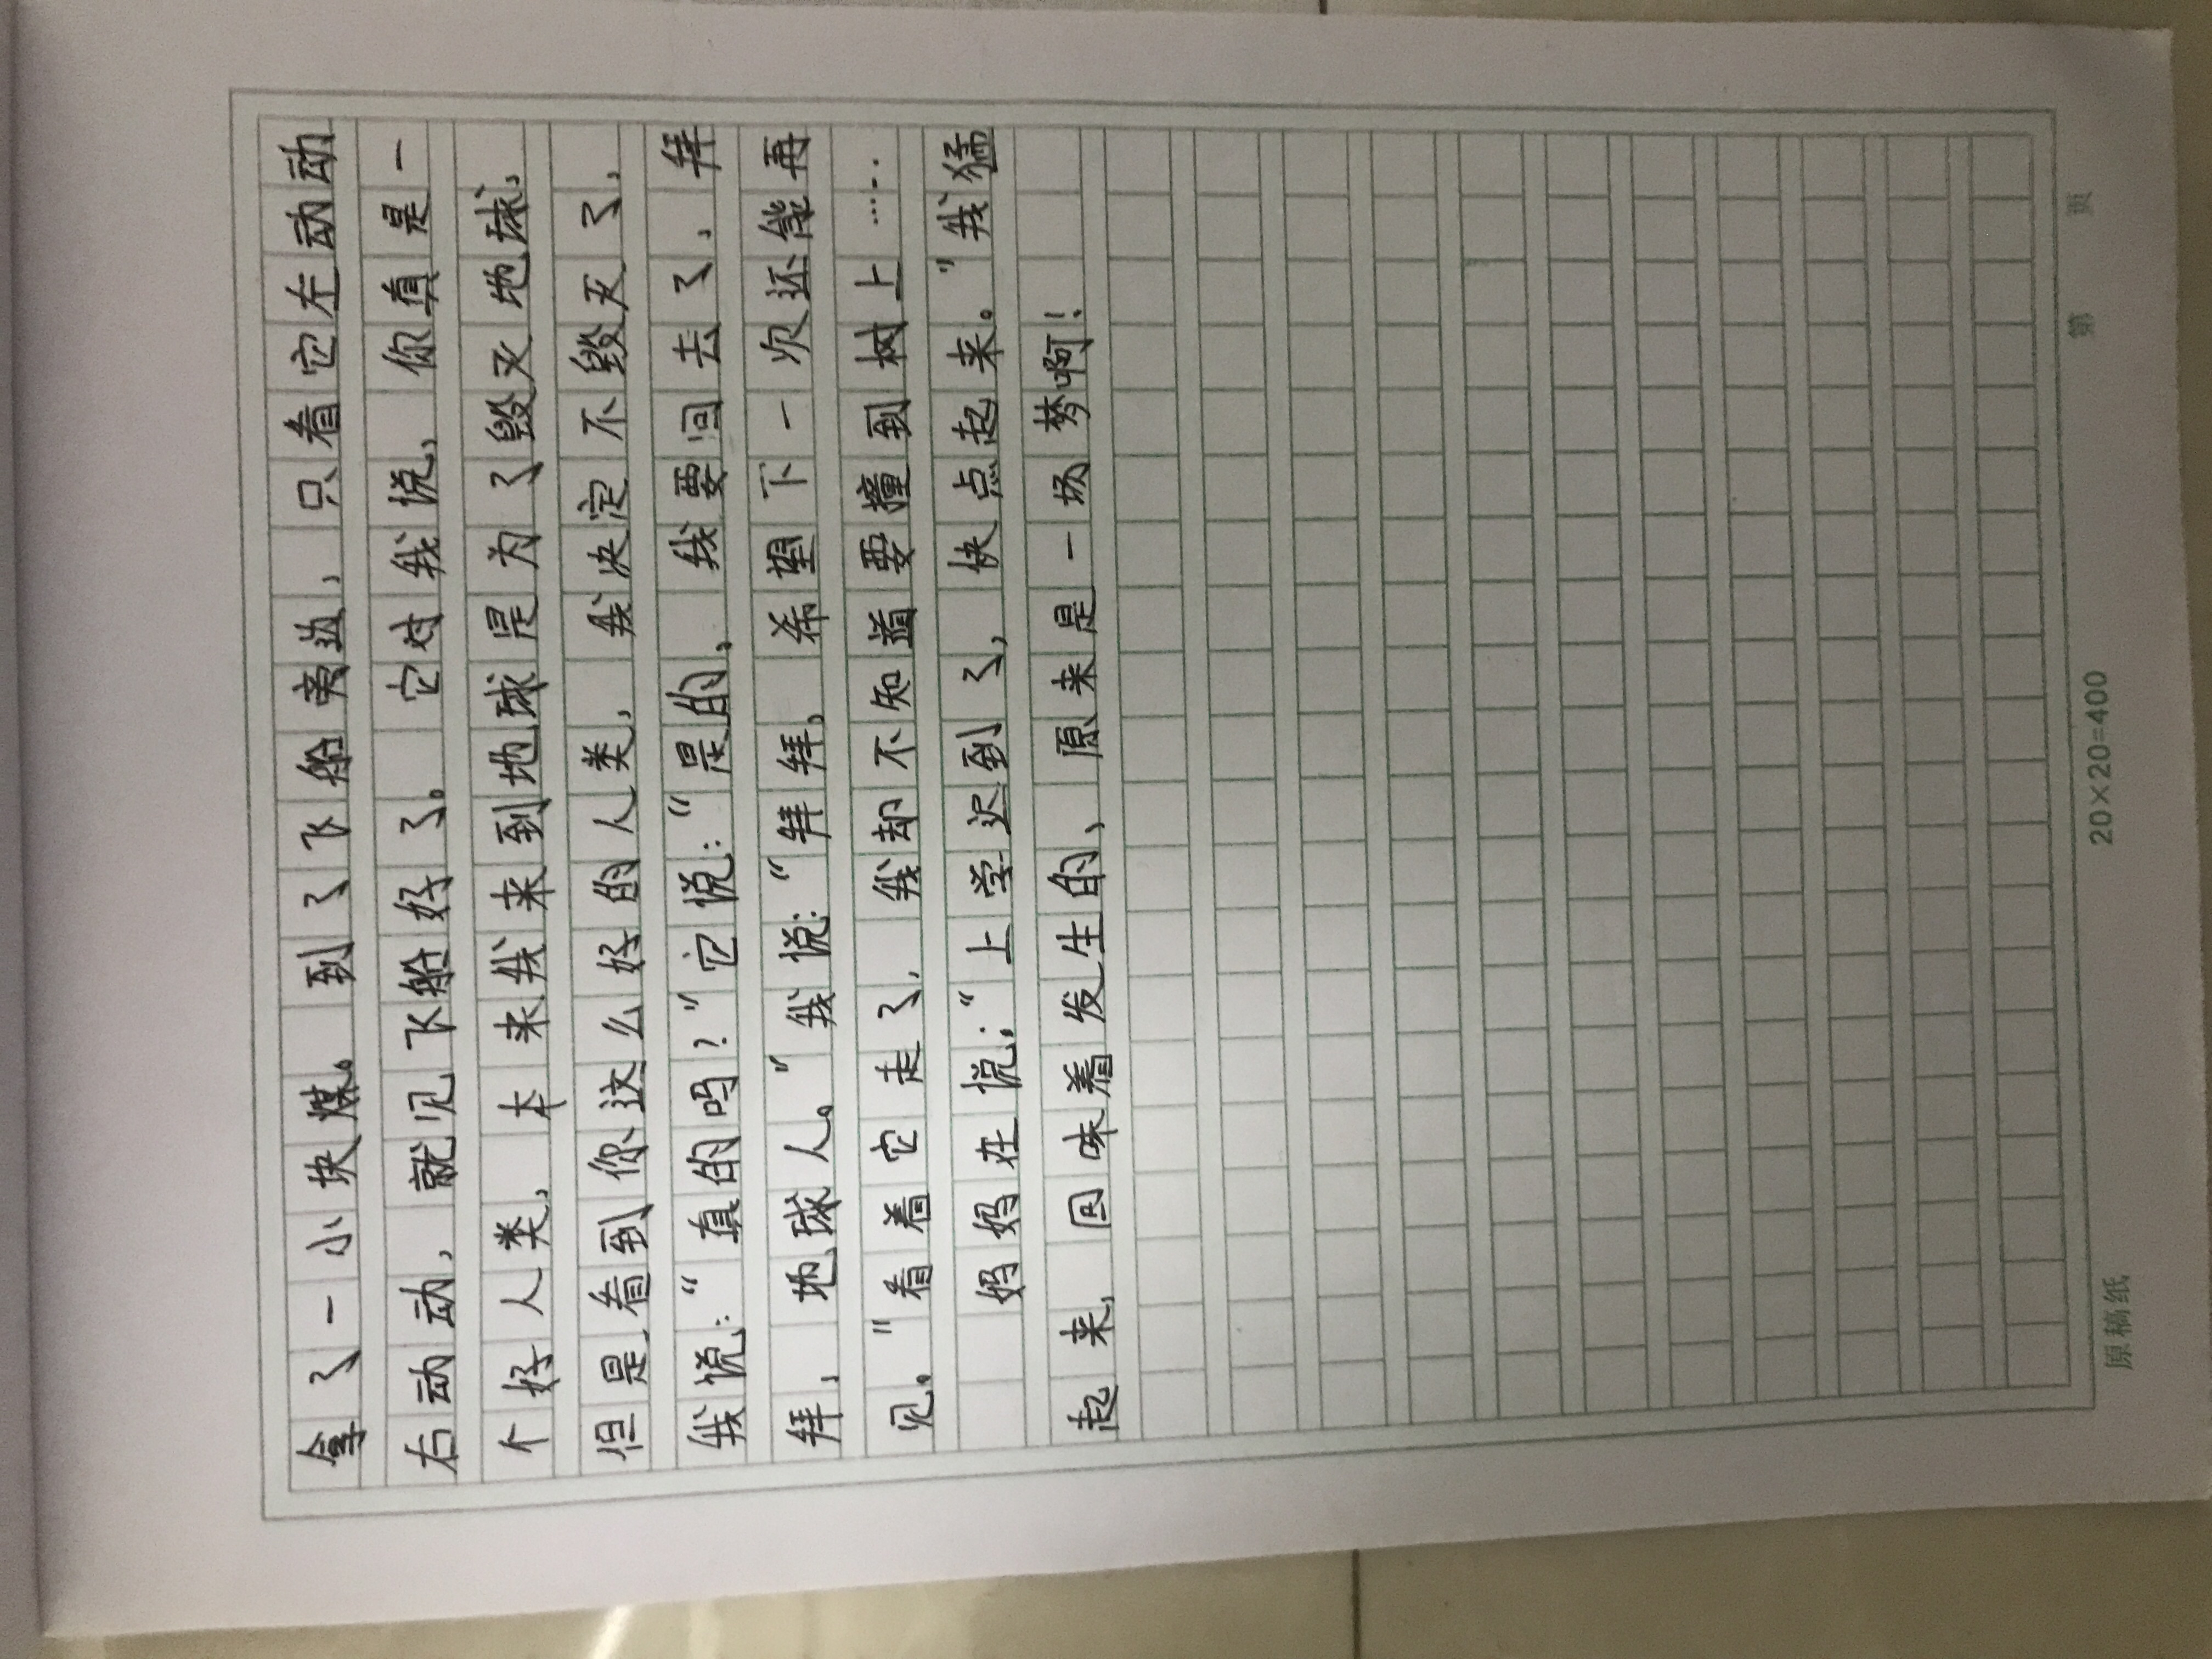 拿了一小块煤。到了飞船旁边，只看它左动动
右动动，就见飞船好了。它对我说，你真是一
个好人类，本来我来到地球是为了毁灭地球，
但是看到你这么好的人类，我决定不毁灭了，
我说：“真的吗？”它说：“是的，我要回去了，拜
拜，地球人。”我说：“拜拜，希望下一次还能再
见。”看着它走了，我却不知道要撞到树上……
妈妈在说：“上学迟到了，快点起来。”我猛
起来，回味着发生的，原来是一场梦啊！
原稿纸
20×20=400
第 页